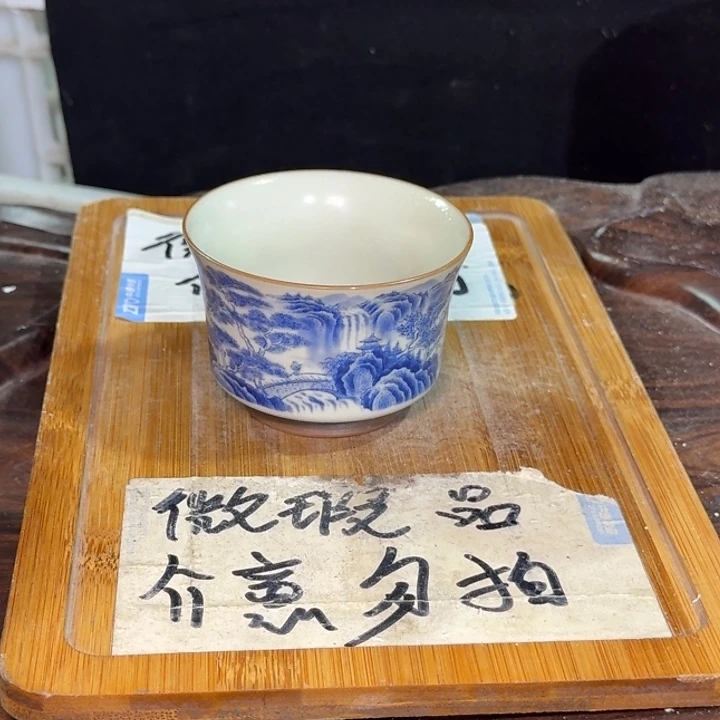 微瑕品
介意勿拍